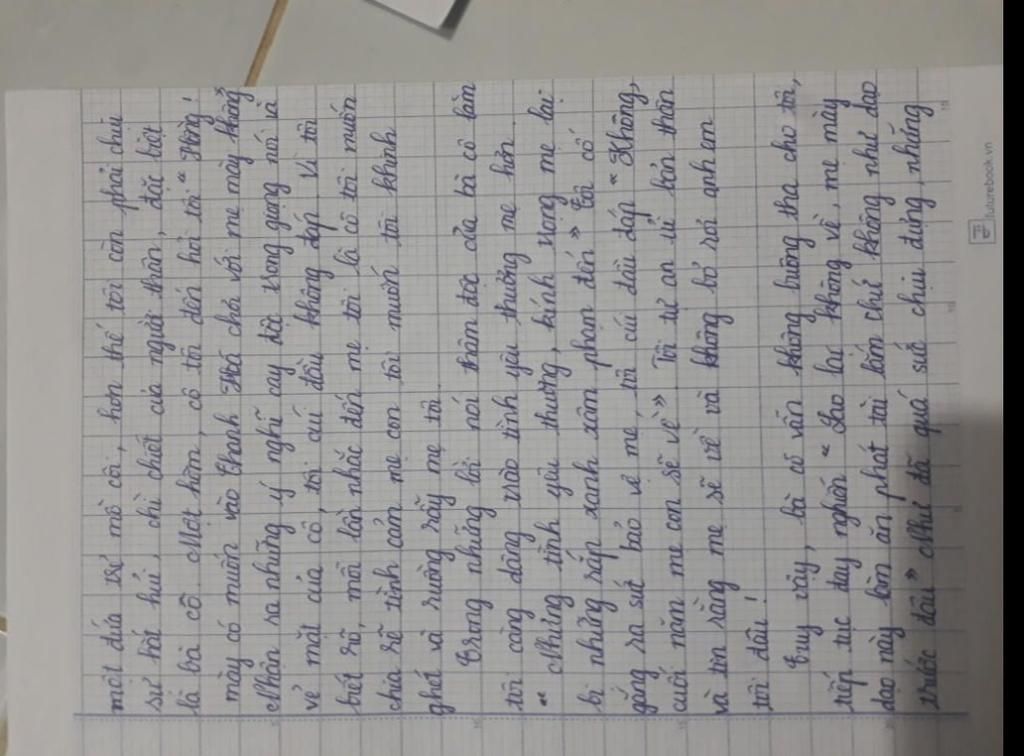 một đứa trẻ mồ côi, hơn thế tôi còn phải chịu
sự hắt hủi, chì chiết của người thân, đặc biệt
là bà cô. Một hôm, cô tôi đến hỏi tôi "Hồng!
mày có muốn vào Thanh Hoá chơi với mẹ mày không
Nhận ra những ý nghĩ cay độc trong giọng nói và
vẻ mặt của cô, tôi cúi đầu không đáp. Vì tôi
biết rõ, mỗi lần nhắc đến mẹ tôi là cô tôi muốn
chia rẽ tình cảm mẹ con tôi muốn tôi khinh
ghét và ruồng rẫy mẹ tôi.
Trong những lời nói thâm độc của bà cô làm
tôi càng dâng trào tình yêu thương mẹ hơn.
" Những tình yêu thương, kính trọng mẹ lại
bị những rắp xanh xâm phạm đến » Tôi cố
gắng ra sức bảo vệ mẹ, tôi cúi đầu đáp "Không,
cuối năm mẹ con sẽ về ». Tôi tự an ủi bản thân
và tin rằng mẹ sẽ về và không bỏ rơi anh em
tôi đâu!
Tuy vậy, bà cô vẫn không buông tha cho tôi,
tiếp tục day nghiến " Sao lại không về, mẹ mày
dạo này làm ăn phát tài lắm chứ không như dạo
trước đâu » Như đã quá sức chịu đựng, những
futurebook.vn